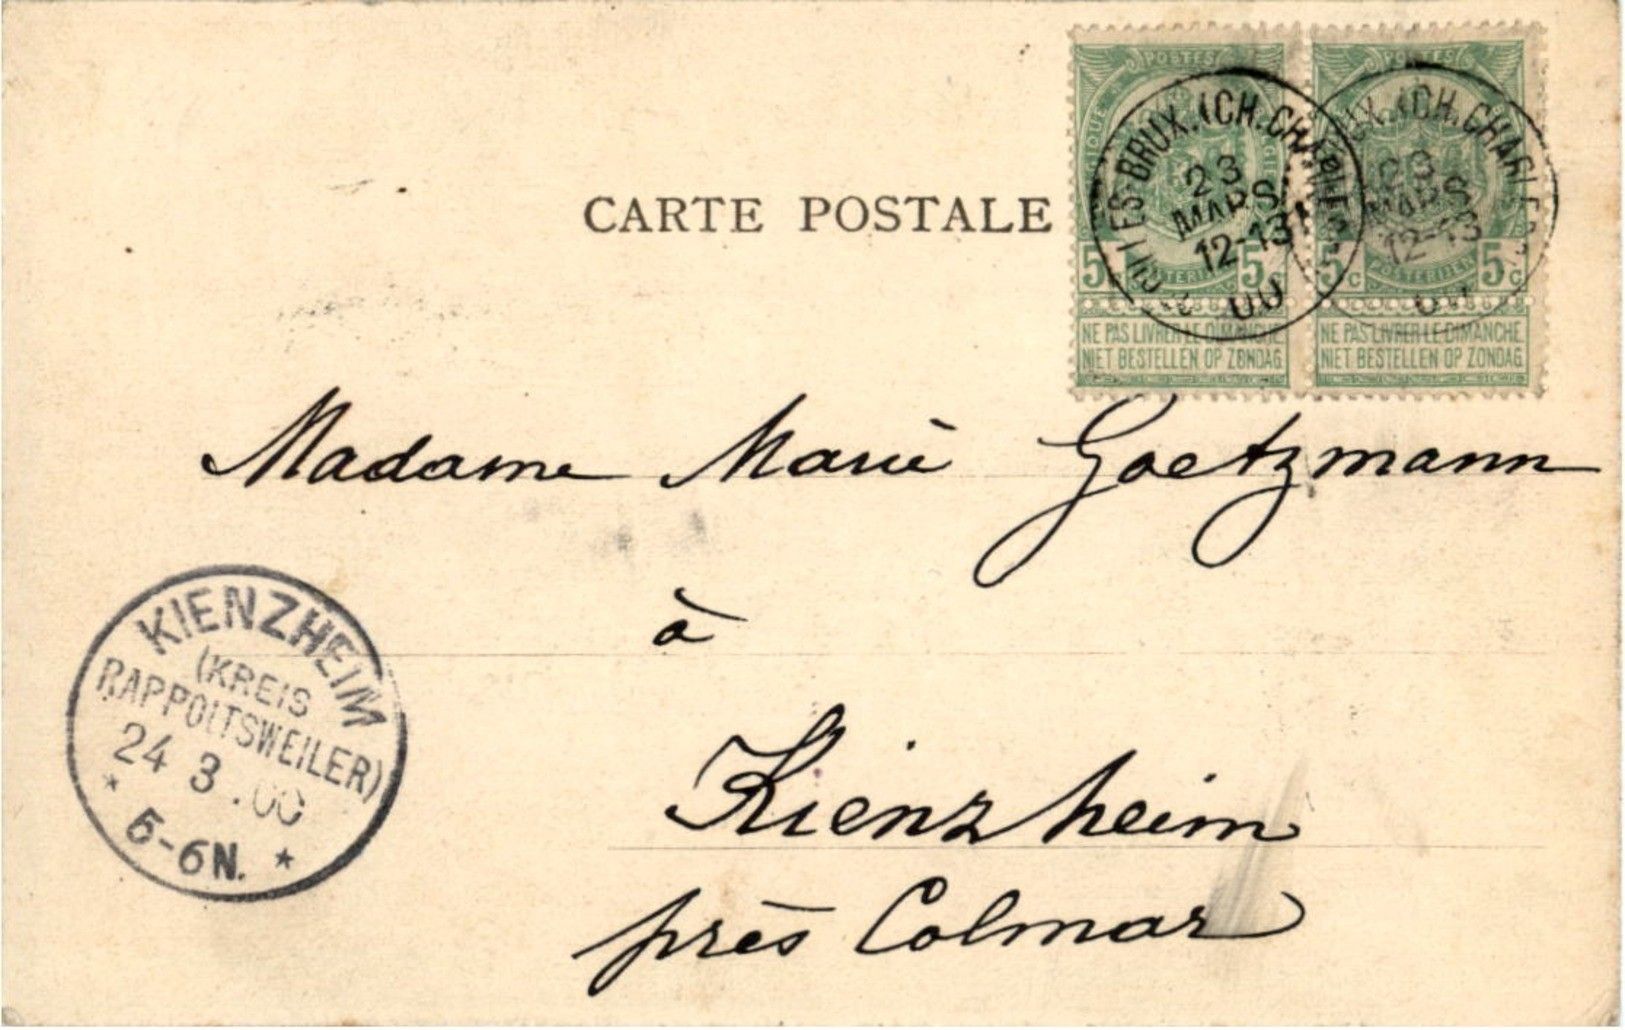 CARTE POSTALE
POSTES
5 5c
NE PAS LIVRER LE DIMANCHE
NIET BESTELLEN OP ZONDAG
POSTES
5c POSTERIJEN 5c
NE PAS LIVRER LE DIMANCHE
NIET BESTELLEN OP ZONDAG
BRUX. (CH. CHARLEROI
23
MARS
12-13
00
UX. (CH. CHARLEROI
23
MARS
12-13
Madame Marie Goetzmann
à
Kienzheim
près Colmar
KIENZHEIM
(KREIS
RAPPOLTSWEILER)
24 3 .00
* 5-6N. *